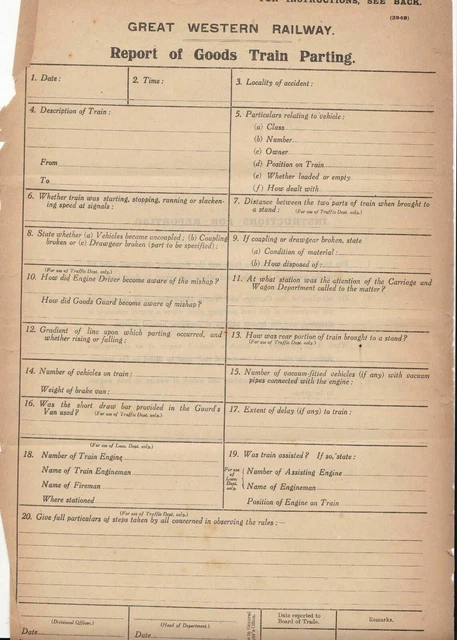 FOR INSTRUCTIONS, SEE BACK.
(2849)
GREAT WESTERN RAILWAY.
Report of Goods Train Parting.
1. Date:
2. Time:
3. Locality of accident:
4. Description of Train:
From
To
5. Particulars relating to vehicle:
(a) Class
(b) Number
(c) Owner
(d) Position on Train
(e) Whether loaded or empty
(f) How dealt with
6. Whether train was starting, stopping, running or slacken-
ing speed at signals:
7. Distance between the two parts of train when brought to
a stand: (For use of Traffic Dept. only.)
8. State whether (a) Vehicles become uncoupled; (b) Coupling
broken or (c) Drawgear broken (part to be specified):
9. If coupling or drawgear broken, state
(a) Condition of material:
(b) How disposed of:
(For use of Traffic Dept. only.)
10. How did Engine Driver become aware of the mishap?
How did Goods Guard become aware of mishap?
11. At what station was the attention of the Carriage and
Wagon Department called to the matter?
12. Gradient of line upon which parting occurred, and
whether rising or falling:
13. How was rear portion of train brought to a stand?
(For use of Traffic Dept. only.)
14. Number of vehicles on train:
Weight of brake van:
15. Number of vacuum-fitted vehicles (if any) with vacuum
pipes connected with the engine:
16. Was the short draw bar provided in the Guard's
Van used? (For use of Traffic Dept. only.)
17. Extent of delay (if any) to train:
(For use of Loco. Dept. only.)
18. Number of Train Engine
Name of Train Engineman
Name of Fireman
Where stationed
19. Was train assisted? If so, state:
For use
of
Loco.
Dept.
only.
Number of Assisting Engine
Name of Engineman
Position of Engine on Train
(For use of Traffic Dept. only.)
20. Give full particulars of steps taken by all concerned in observing the rules:—
(Divisional Officer.)
Date
(Head of Department.)
Date
Date reported to
Board of Trade.
Remarks.